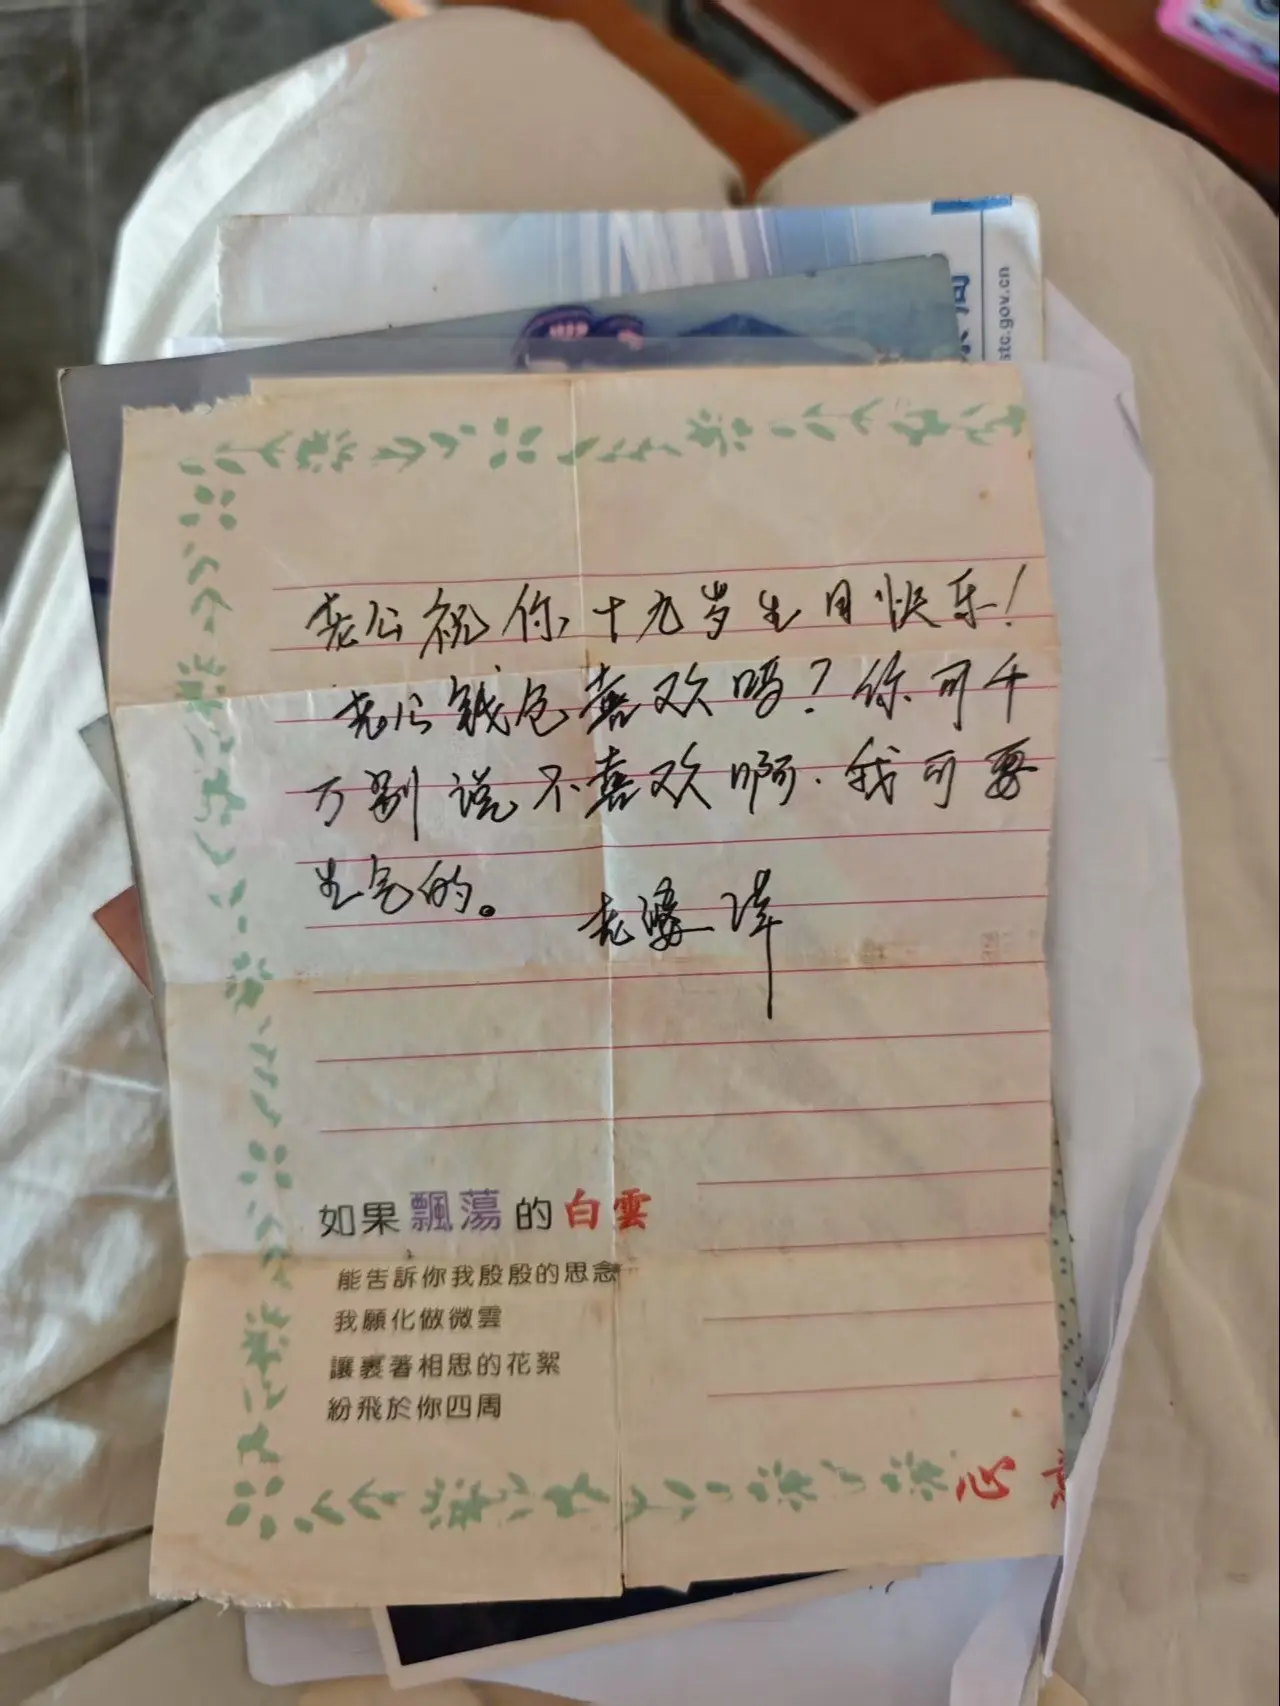 stc.gov.cn
老公祝你十九岁生日快乐!
老公钱包喜欢吗?你可千
万别说不喜欢啊.我可要
生气的。
老婆 
如果飄蕩的白雲
能告訴你我殷殷的思念
我願化做微雲
讓裹著相思的花絮
紛飛於你四周